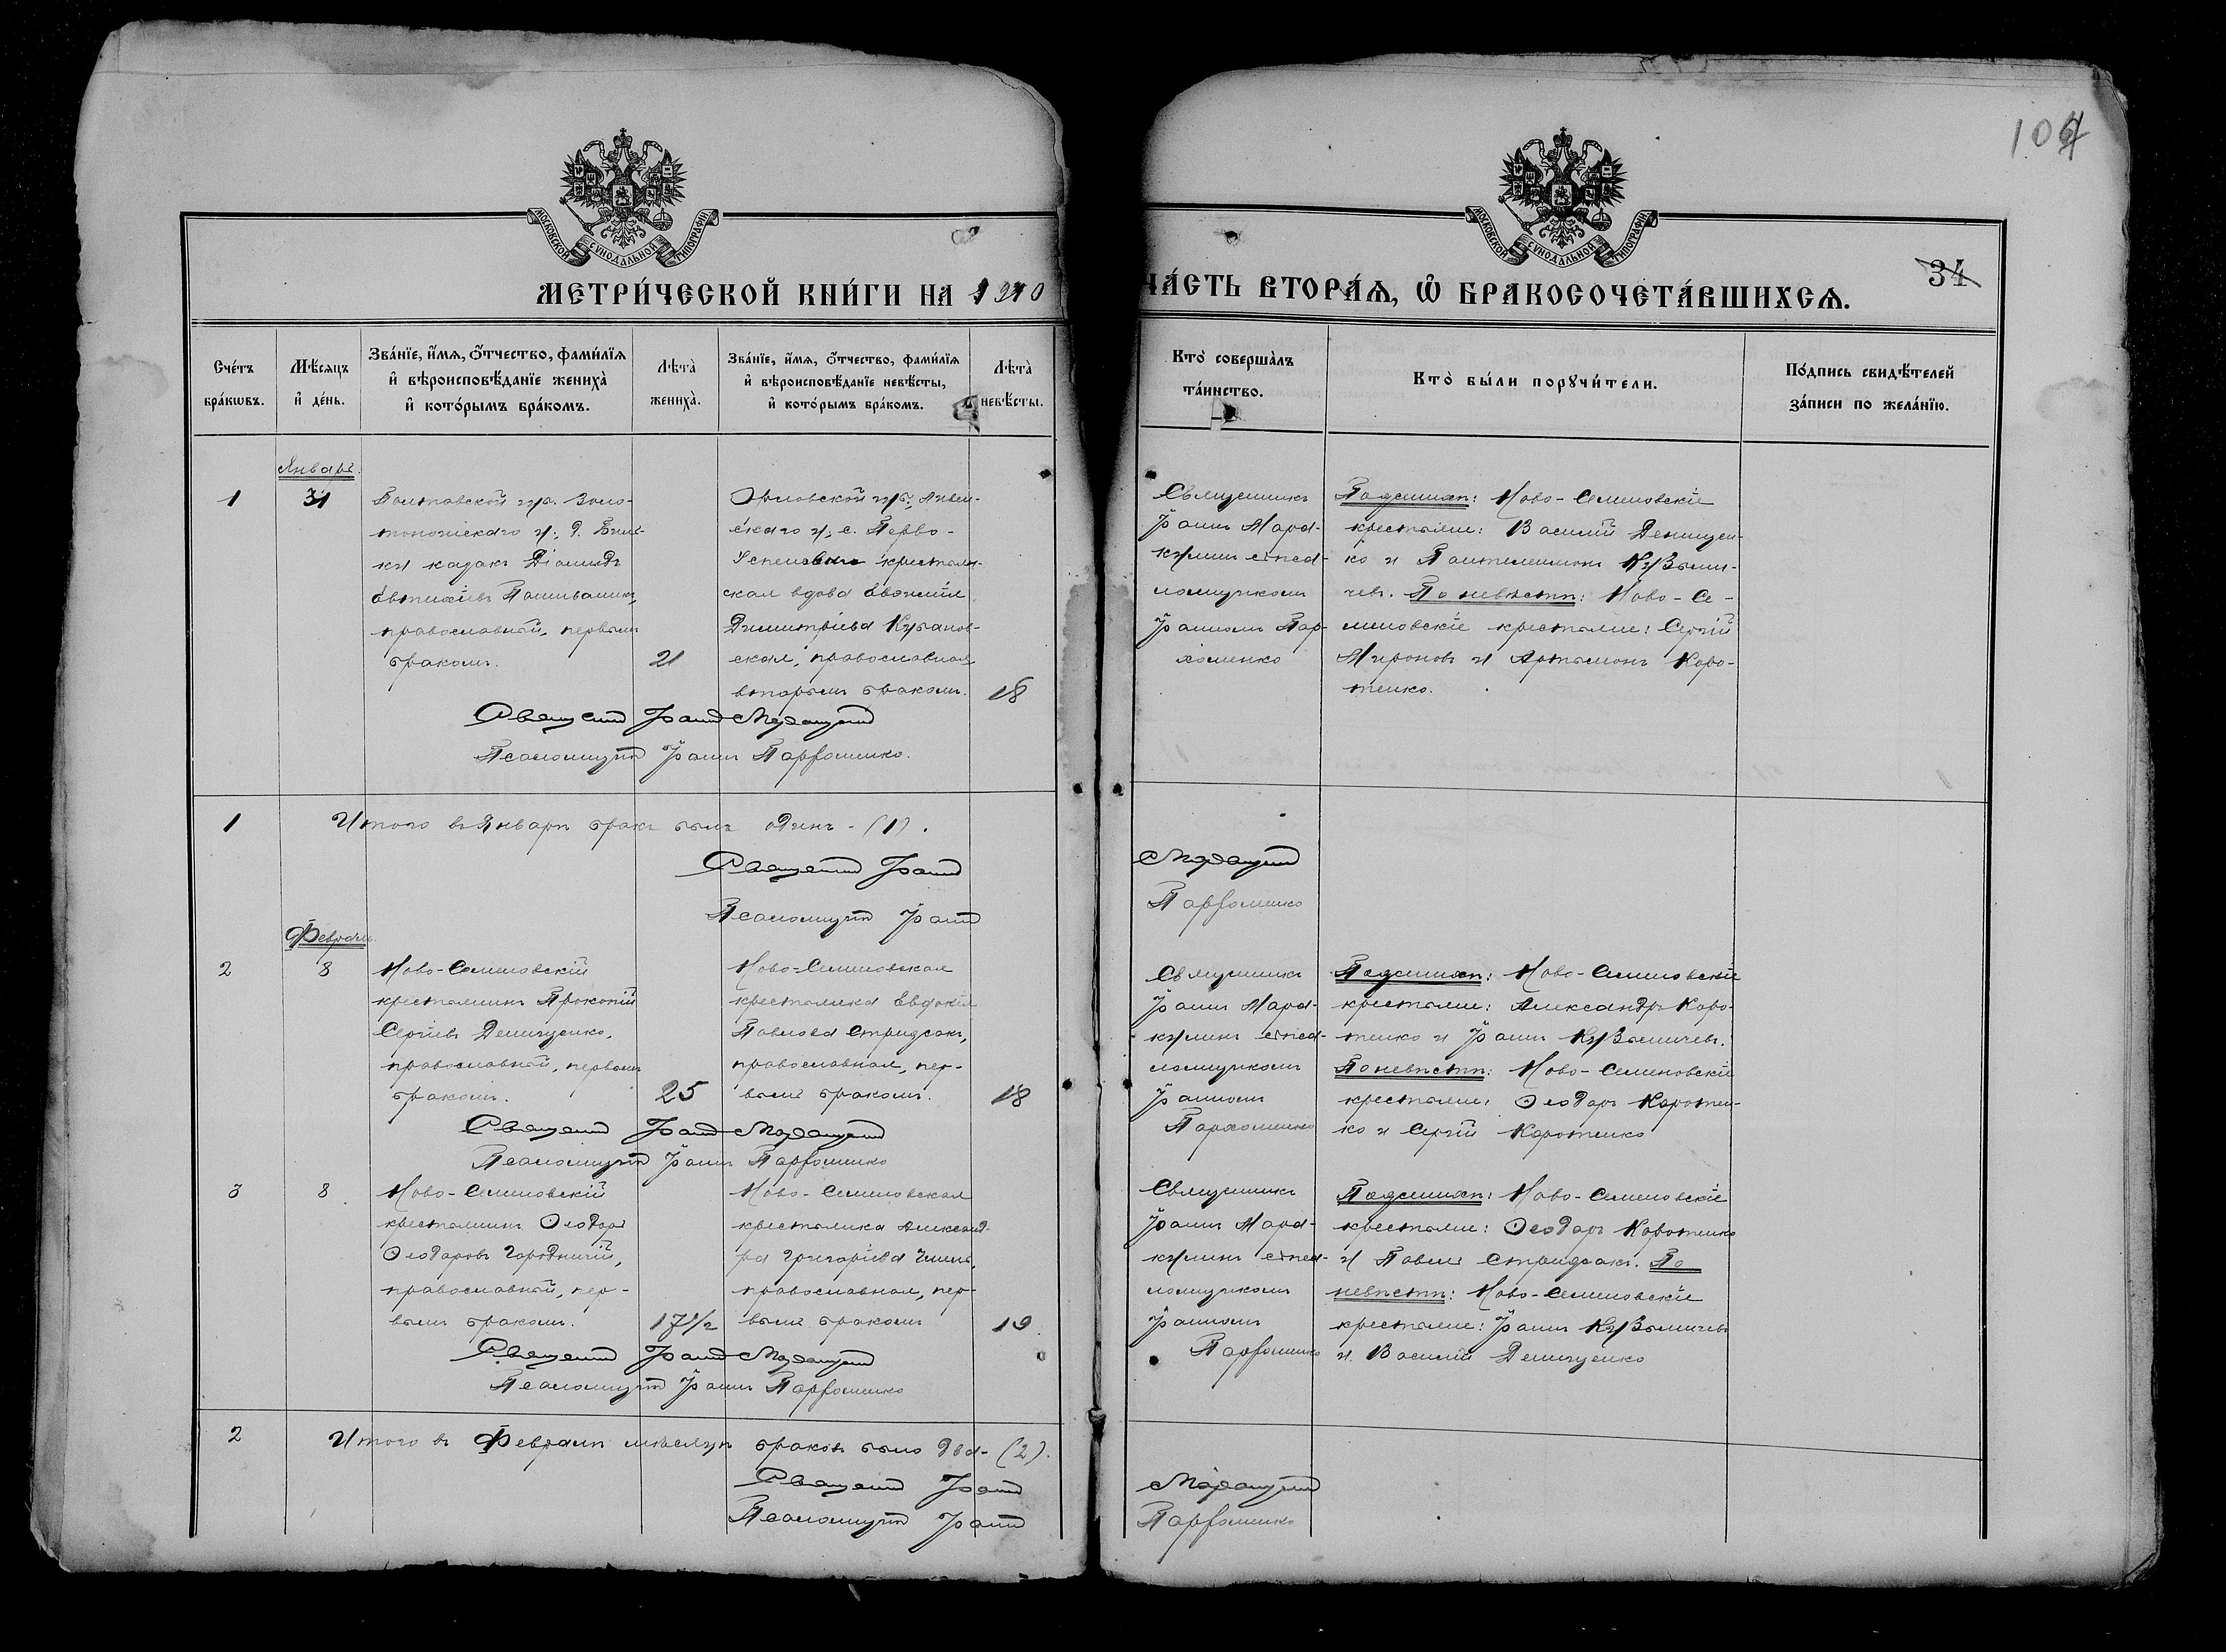 104
МОСКОВСКОЙ СѴНОДАЛЬНОЙ ТИПОГРАФІИ
МОСКОВСКОЙ СѴНОДАЛЬНОЙ ТИПОГРАФІИ
34
МЕТРИ́ЧЕСКОЙ КНИ́ГИ НА 1910 ЧА́СТЬ ВТОРА́Ѧ, Ѡ҆ БРАКОСОЧЕТА́ВШИХСѦ.
Сче́тъ бра́кѡвъ.
Мѣ́сяцъ и҆ де́нь.
Зва́нїе, и҆́мѧ, ѻ҆́тчество, фами́лїѧ и҆ вѣроисповѣ́данїе жениха̀ и҆ кото́рымъ бра́комъ.
Лѣта̀ жениха̀.
Зва́нїе, и҆́мѧ, ѻ҆́тчество, фами́лїѧ и҆ вѣроисповѣ́данїе невѣ́сты, и҆ кото́рымъ бра́комъ.
Лѣта̀ невѣ́сты.
Кто̀ соверша̀лъ та́инство.
Кто̀ бы́ли порꙋчи́тели.
По́дпись свидѣ́телей за́писи по жела́нїю.
Январь.
1
31
Полтавской губ. Золо-
тоношскаго у., д.
ки казакъ Діомидъ
Евтихіевъ
православный, первымъ
бракомъ.
21
Орловской губ., Ливен-
скаго у., с. Перво-
Успеновки крестьян-
ская вдова Евфимія
Димитріева
православная
вторымъ бракомъ.
18
Священникъ
Іоаннъ Мард-
кулинъ с псал-
ломщикомъ
Іоанномъ Пар-
хоменко
По женихѣ: Ново-Семеновскіе
крестьяне: Василій Демиден-
ко и Пантелеимонъ Кузьми-
чевъ. По невѣстѣ: Ново-Се-
меновскіе крестьяне: Сергій
Мироновъ и Артамонъ Коро-
тенко.
Священникъ Іоаннъ
Псаломщикъ Іоаннъ Пархоменко.
1
Итого въ Январѣ бракъ былъ одинъ - (1).
Священникъ Іоаннъ
Псаломщикъ Іоаннъ Пархоменко
Февраль.
2
8
Ново-Семеновскій
крестьянинъ Прокопій
Сергіевъ Демиденко,
православный, первымъ
бракомъ.
25
Ново-Семеновская
крестьянка Евдокія
Павлова Стрижакъ,
православная, пер-
вымъ бракомъ.
18
Священникъ
Іоаннъ Мард-
кулинъ с псал-
ломщикомъ
Іоанномъ
Пархоменко
По женихѣ: Ново-Семеновскіе
крестьяне: Александръ Коро-
тенко и Іоаннъ Кузьмичевъ.
По невѣстѣ: Ново-Семеновскіе
крестьяне: Ѳеодоръ Коротен-
ко и Сергій Коротенко
Священникъ Іоаннъ
Псаломщикъ Іоаннъ Пархоменко
3
8
Ново-Семеновскій
крестьянинъ Ѳеодоръ
Ѳеодоровъ Городничій,
православный, пер-
вымъ бракомъ.
17½
Ново-Семеновская
крестьянка Александ-
ра Григоріева
православная, пер-
вымъ бракомъ
19
Священникъ
Іоаннъ Мард-
кулинъ с псал-
ломщикомъ
Іоанномъ
Пархоменко
По женихѣ: Ново-Семеновскіе
крестьяне: Ѳеодоръ Коротенко
и Павелъ Стрижакъ. По
невѣстѣ: Ново-Семеновскіе
крестьяне: Іоаннъ Кузьмичевъ
и Василій Демиденко
Священникъ Іоаннъ
Псаломщикъ Іоаннъ Пархоменко
2
Итого въ Февралѣ мѣсяцѣ браковъ было два - (2).
Священникъ Іоаннъ
Псаломщикъ Іоаннъ Пархоменко